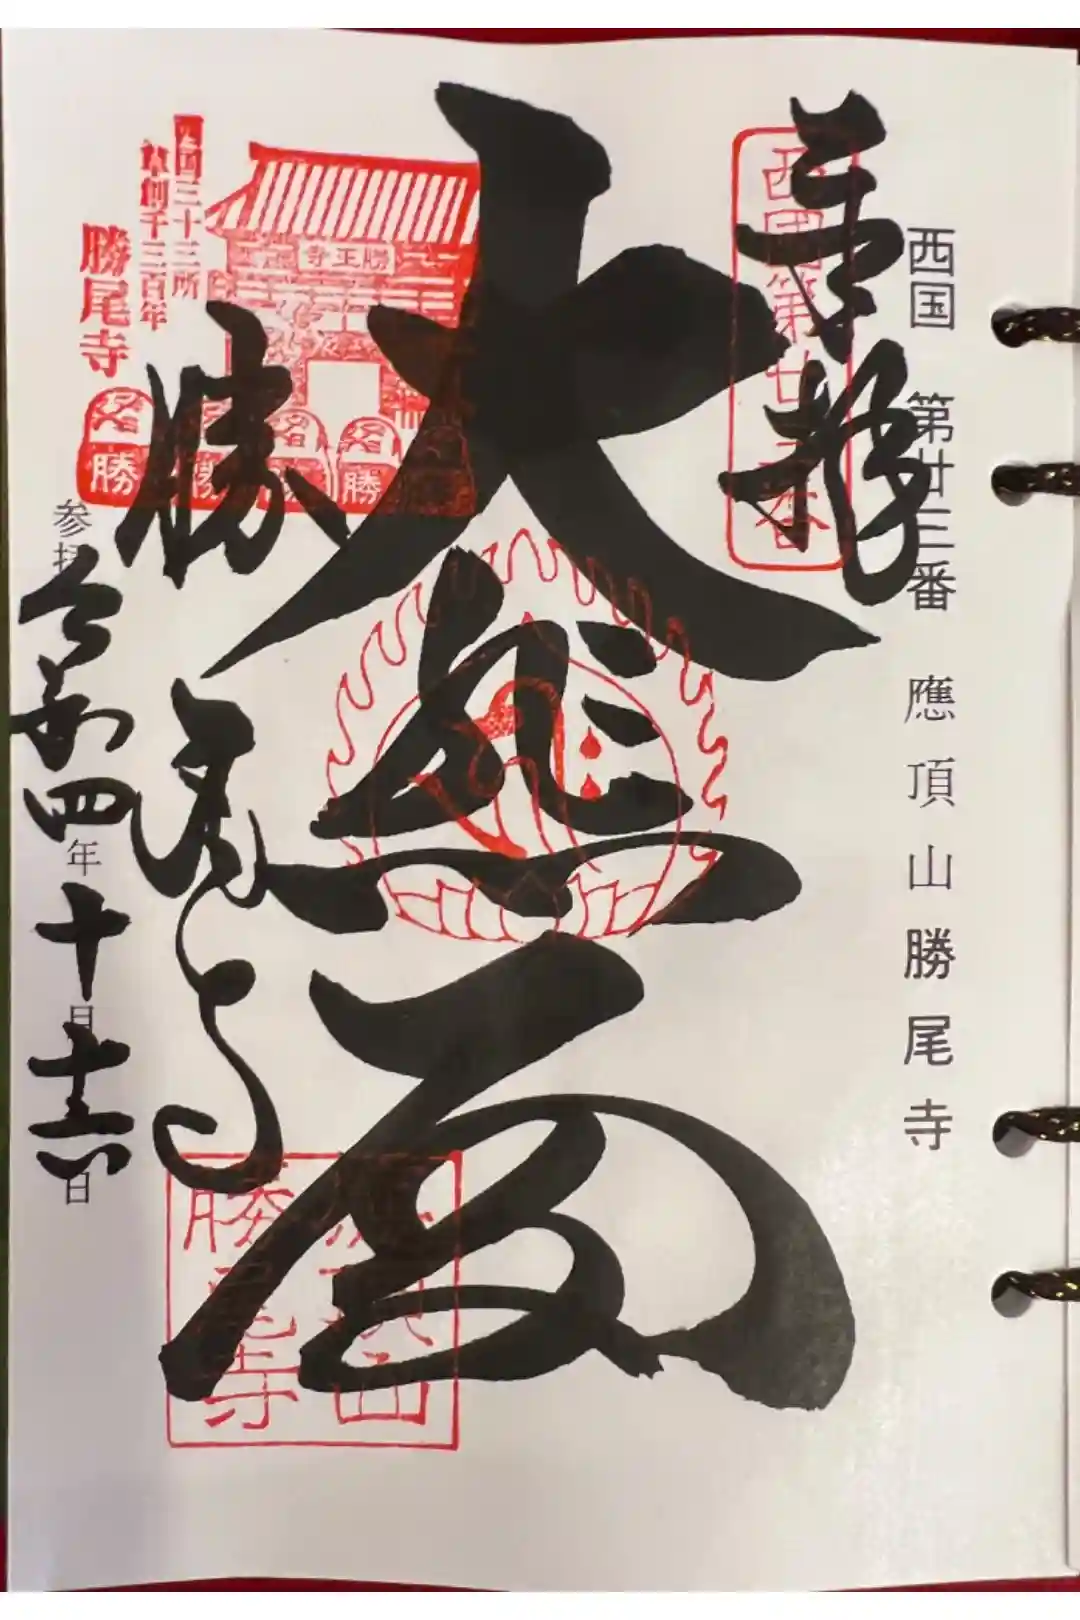 西国 第廿三番 應頂山勝尾寺
奉拝
西國第廿三番
大悲
勝尾寺
西国三十三所
草創千三百年
勝尾寺
勝正寺
勝
勝
勝
参拝 令和四年十月十六日
應頂山
勝尾寺